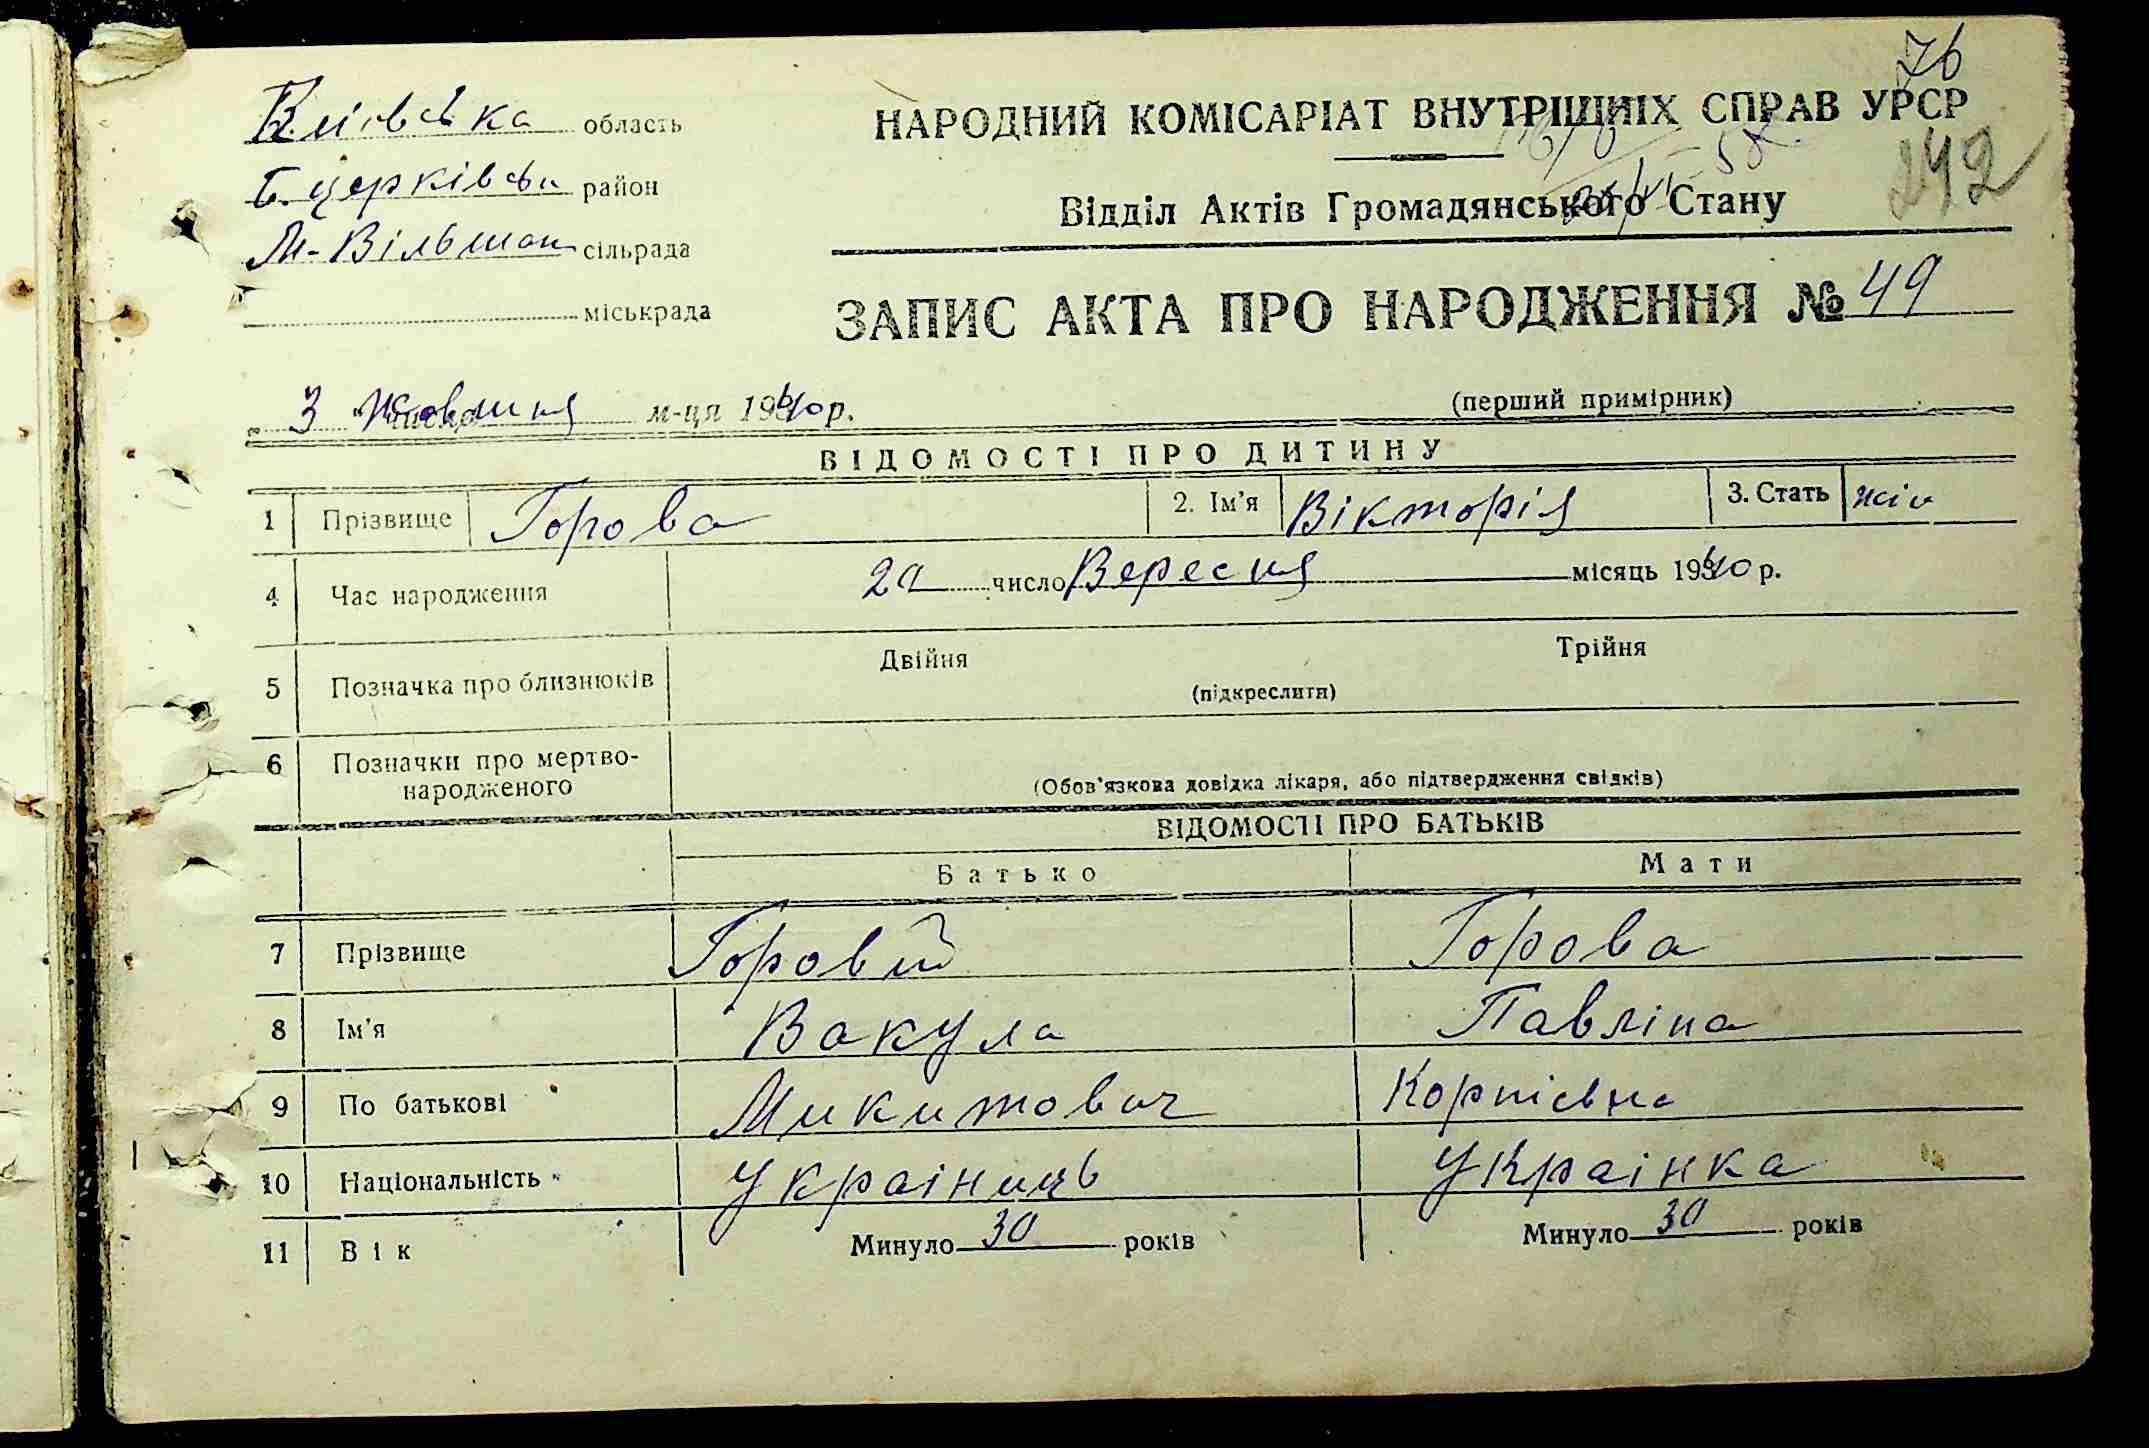 76
Київська область
НАРОДНИЙ КОМІСАРІАТ ВНУТРІШНІХ СПРАВ УРСР
242
Б. церківськ район
Відділ Актів Громадянського Стану
М-Вільшан сільрада
міськрада
ЗАПИС АКТА ПРО НАРОДЖЕННЯ № 49
"3" Жовтня м-ця 1940 р.
(перший примірник)
ВІДОМОСТІ ПРО ДИТИНУ
1 Прізвище Горова 2. Ім'я Вікторія 3. Стать жін
4 Час народження 20 число Вересня місяць 1940 р.
5 Позначка про близнюків Двійня Трійня
(підкреслити)
6 Позначки про мертво-
народженого (Обов'язкова довідка лікаря, або підтвердження свідків)
ВІДОМОСТІ ПРО БАТЬКІВ
Батько Мати
7 Прізвище Горовий Горова
8 Ім'я Вакула Павліна
9 По батькові Микитович Корніевна
10 Національність Украінець Украінка
11 Вік Минуло 30 років Минуло 30 років